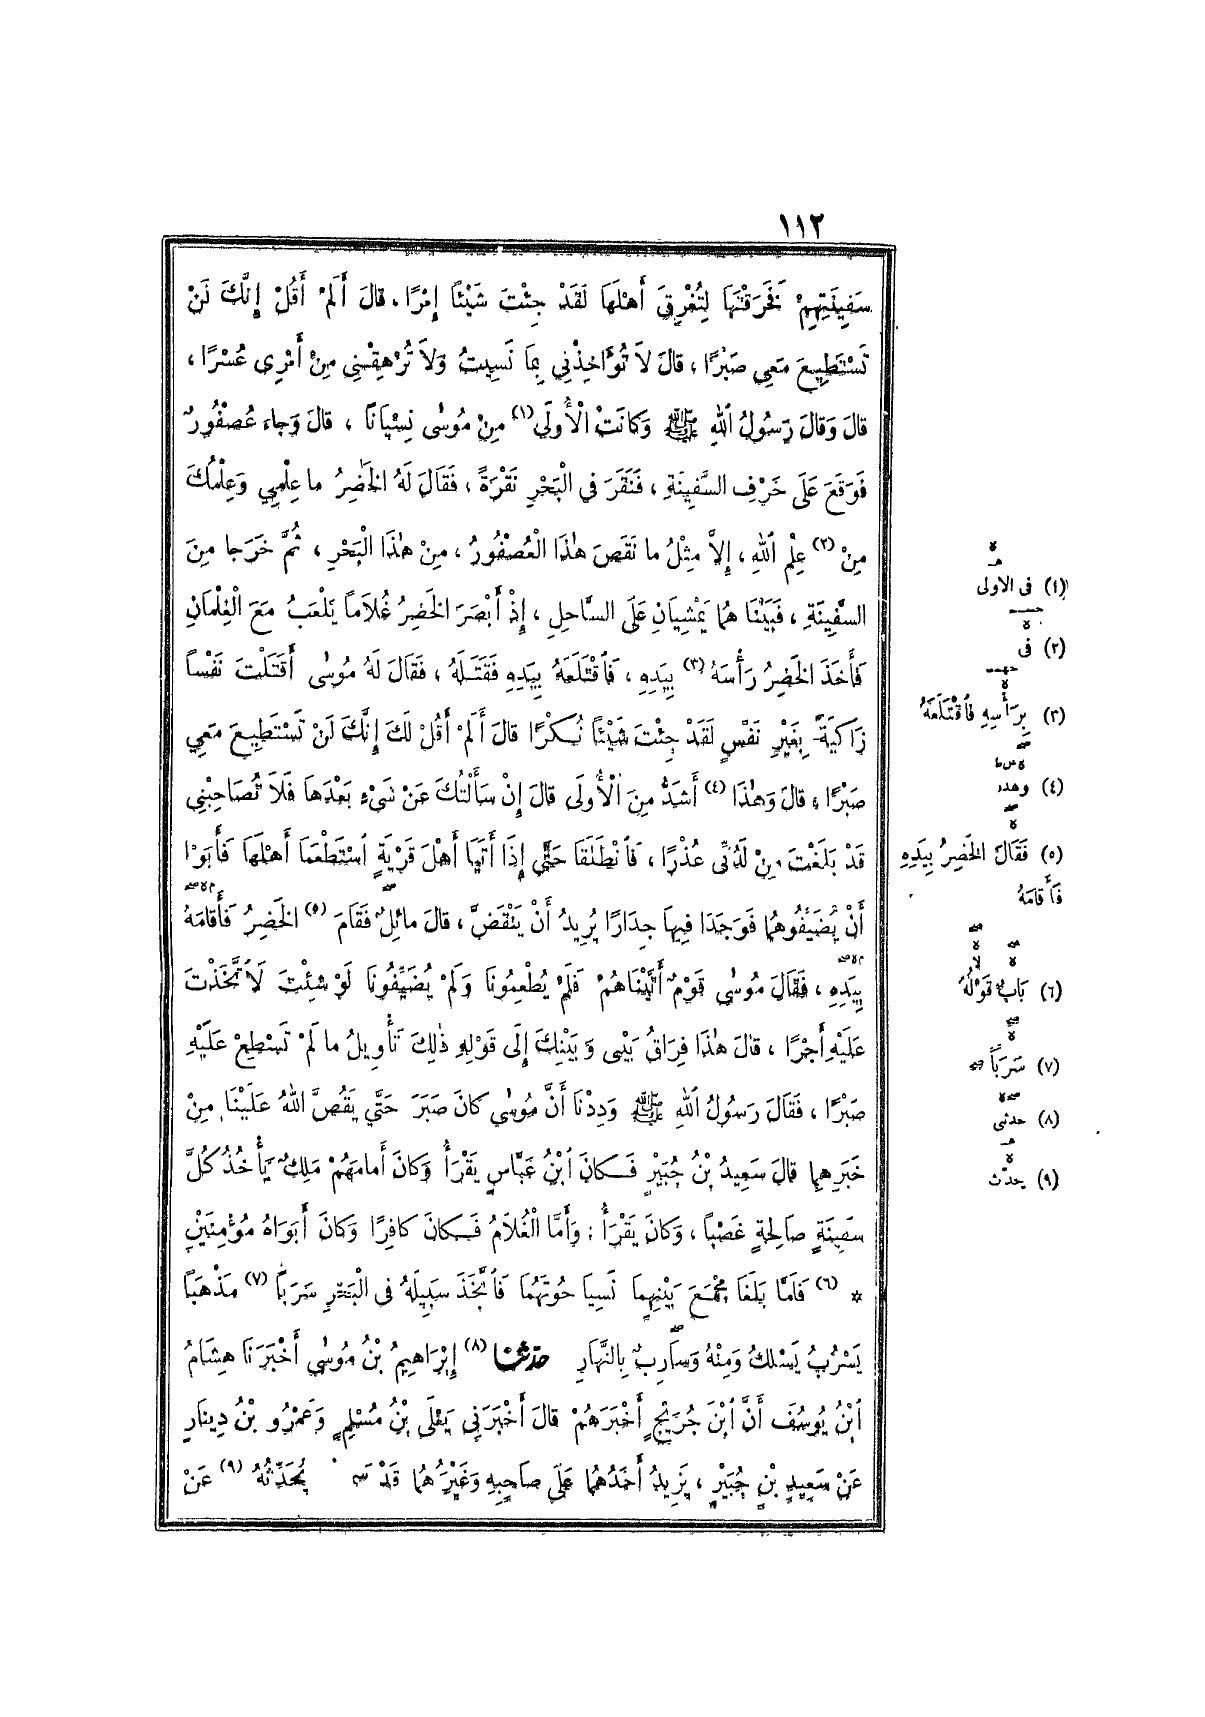 ١١٢
سَفِينَتِهِمْ فَخَرَقْتَهَا لِتُغْرِقَ أَهْلَهَا لَقَدْ جِئْتَ شَيْئًا إِمْرًا ، قالَ أَلَمْ أَقُلْ إِنَّكَ لَنْ
تَسْتَطِيعَ مَعِي صَبْرًا ، قالَ لاَ تُؤَاخِذْنِي بِمَا نَسِيتُ وَلاَ تُرْهِقْنِي مِنْ أَمْرِى عُسْرًا ،
قالَ وَقالَ رَسُولُ اللهِ ﷺ وَكانَتْ الْأُولَى (١) مِنْ مُوسٰى نِسْيَانًا ، قالَ وَجاءَ عُصْفُورٌ
فَوَقَعَ عَلَى حَرْفِ السَّفِينَةِ ، فَنَقَرَ فِي الْبَحْرِ نَقْرَةً ، فَقَالَ لَهُ الخَضِرُ ما عِلْمِي وَعِلْمُكَ
مِنْ (٢) عِلْمِ اللهِ ، إِلاَّ مِثْلُ ما نَقَصَ هٰذَا الْعُصْفُورُ ، مِنْ هٰذَا الْبَحْرِ ، ثُمَّ خَرَجا مِنَ
السَّفِينَةِ ، فَبَيْنَا هُمَا يَمْشِيَانِ عَلَى السَّاحِلِ ، إِذْ أَبْصَرَ الخَضِرُ غُلاَمًا يَلْعَبُ مَعَ الْغِلْمَانِ
فَأَخَذَ الخَضِرُ رَأْسَهُ (٣) بِيَدِهِ ، فَاقْتَلَعَهُ بِيَدِهِ فَقَتَلَهُ ، فَقَالَ لَهُ مُوسٰى أَقَتَلْتَ نَفْسًا
زَاكِيَةً بِغَيْرِ نَفْسٍ لَقَدْ جِئْتَ شَيْئًا نُكْرًا قالَ أَلَمْ أَقُلْ لَكَ إِنَّكَ لَنْ تَسْتَطِيعَ مَعِي
صَبْرًا ، قالَ وَهٰذَا (٤) أَشَدُّ مِنَ الْأُولَى قالَ إِنْ سَأَلْتُكَ عَنْ شَىْءٍ بَعْدَهَا فَلاَ تُصَاحِبْنِي
قَدْ بَلَغْتَ مِنْ لَدُنِّى عُذْرًا ، فَانْطَلَقَا حَتَّى إِذَا أَتَيَا أَهْلَ قَرْيَةٍ اسْتَطْعَمَا أَهْلَهَا فَأَبَوْا
أَنْ يُضَيِّفُوهُمَا فَوَجَدَا فِيهَا جِدَارًا يُرِيدُ أَنْ يَنْقَضَّ ، قالَ مائِلٌ فَقَامَ (٥) الخَضِرُ فَأَقامَهُ
بِيَدِهِ ، فَقَالَ مُوسٰى قَوْمٌ أَتَيْنَاهُمْ فَلَمْ يُطْعِمُونَا وَلَمْ يُضَيِّفُونَا لَوْ شِئْتَ لاَتَّخَذْتَ
عَلَيْهِ أَجْرًا ، قالَ هٰذَا فِرَاقُ بَيْنِى وَبَيْنِكَ إِلَى قَوْلِهِ ذٰلِكَ تَأْوِيلُ ما لَمْ تَسْطِعْ عَلَيْهِ
صَبْرًا ، فَقَالَ رَسُولُ اللهِ ﷺ وَدِدْنَا أَنَّ مُوسٰى كانَ صَبَرَ حَتَّى يَقُصَّ اللهُ عَلَيْنَا مِنْ
خَبَرِهِمَا قالَ سَعِيدُ بْنُ جُبَيْرٍ فَكانَ ابْنُ عَبَّاسٍ يَقْرَأُ وَكانَ أَمامَهُمْ مَلِكٌ يَأْخُذُ كُلَّ
سَفِينَةٍ صَالِحَةٍ غَصْبًا ، وَكانَ يَقْرَأُ : وَأَمَّا الْغُلاَمُ فَكانَ كافِرًا وَكانَ أَبَوَاهُ مُؤْمِنَيْنِ
* (٦) فَلَمَّا بَلَغَا مَجْمَعَ بَيْنِهِمَا نَسِيَا حُوتَهُمَا فَاتَّخَذَ سَبِيلَهُ فِى الْبَحْرِ سَرَبًا (٧) مَذْهَبًا
يَسْرُبُ يَسْلُكُ وَمِنْهُ وَسَارِبٌ بِالنَّهَارِ حَدَّثَنَا (٨) إِبْرَاهِيمُ بْنُ مُوسٰى أَخْبَرَنَا هِشَامُ
ابْنُ يُوسُفَ أَنَّ ابْنَ جُرَيْجٍ أَخْبَرَهُمْ قالَ أَخْبَرَنِى يَعْلَى بْنُ مُسْلِمٍ وَعَمْرُو بْنُ دِينَارٍ
عَنْ سَعِيدِ بْنِ جُبَيْرٍ ، يَزِيدُ أَحَدُهُمَا عَلَى صَاحِبِهِ وَغَيْرُهُمَا قَدْ يُحَدِّثُهُ (٩) عَنْ
(١) فى الاولى
(٢) فى
(٣) بِرَأْسِهِ فَاقْتَلَعَهُ
(٤) وهذه
(٥) فَقَالَ الخَضِرُ بِيَدِهِ
فَأَقامَهُ
(٦) بَابُ قَوْلُهُ
(٧) سَرَبًا
(٨) حدثنى
(٩) يحدّث